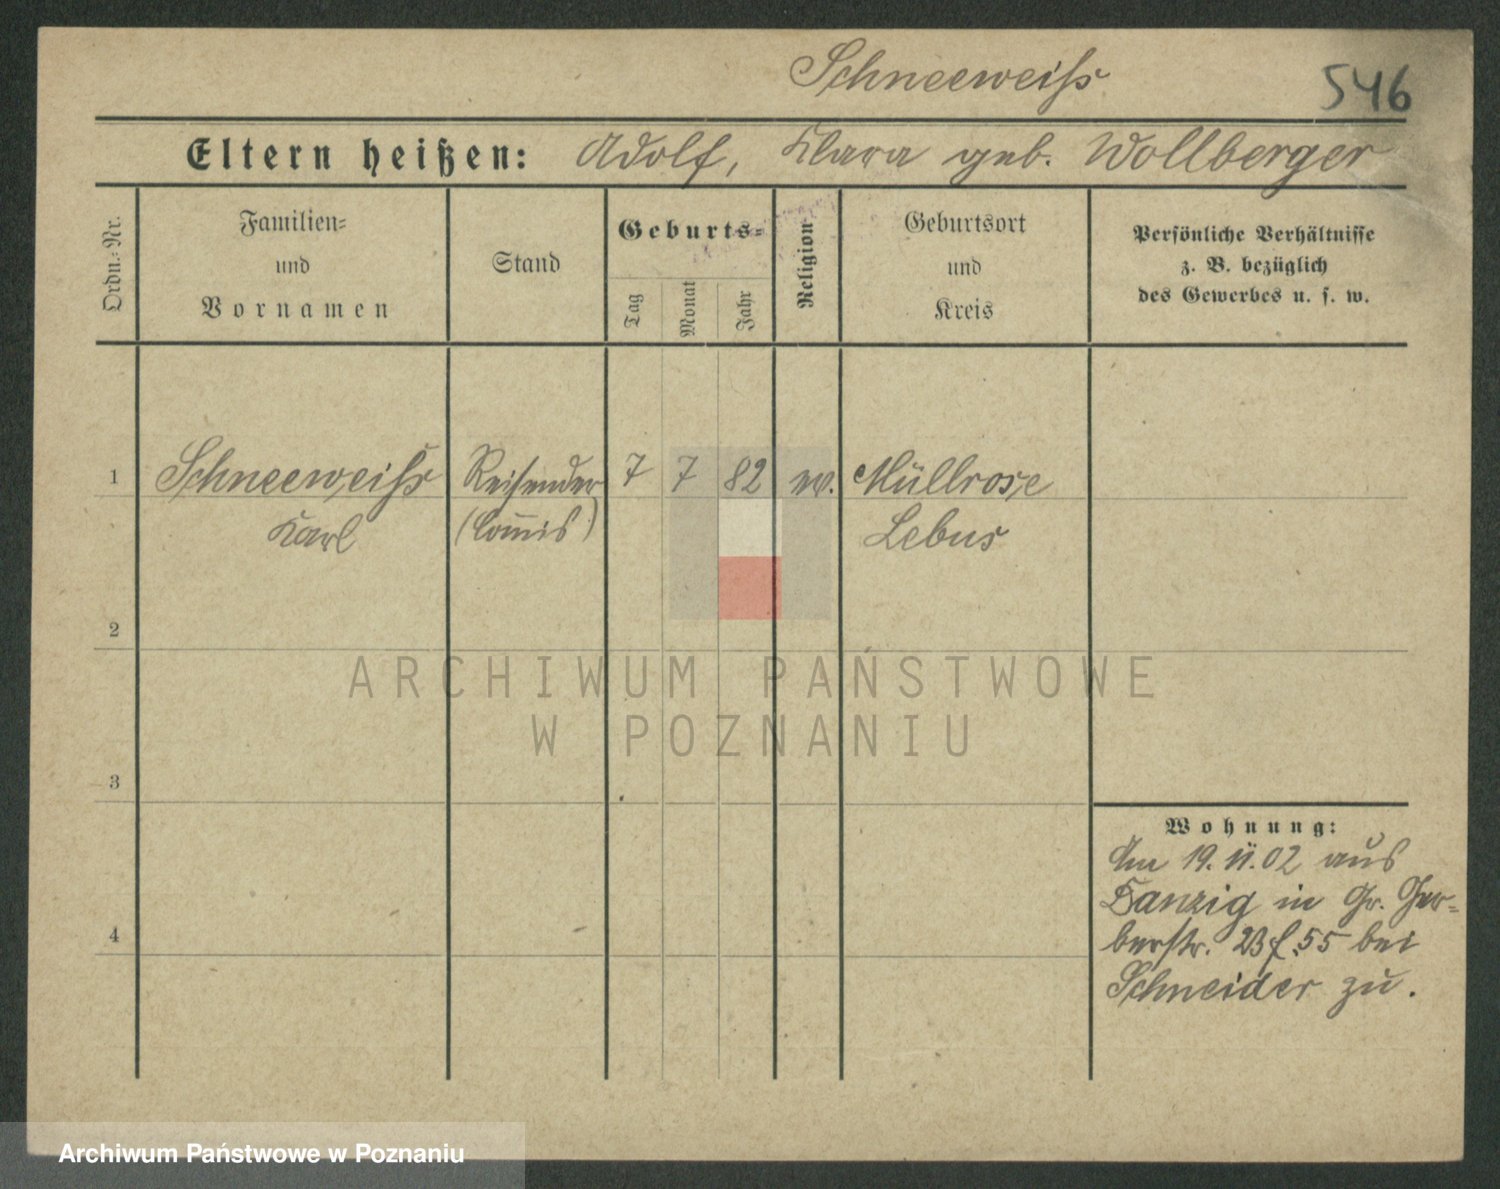 Schneeweiß
546
Eltern heißen: Adolf, Klara geb. Wollberger
Ordn.-Nr.
Familien-
und
Vornamen
Stand
Geburts-
Tag
Monat
Jahr
Religion
Geburtsort
und
Kreis
Persönliche Verhältnisse
z. B. bezüglich
des Gewerbes u. s. w.
1 Schneeweiß Reisender 7 7 82 ev. Müllrose
Karl (Com̅is) Lebus
2
3
4
Wohnung:
Am 19. 11. 02 aus
Danzig in Gr. Ger-
berstr. 55 bei
Schneider zu.
ARCHIWUM PAŃSTWOWE
W POZNANIU
Archiwum Państwowe w Poznaniu